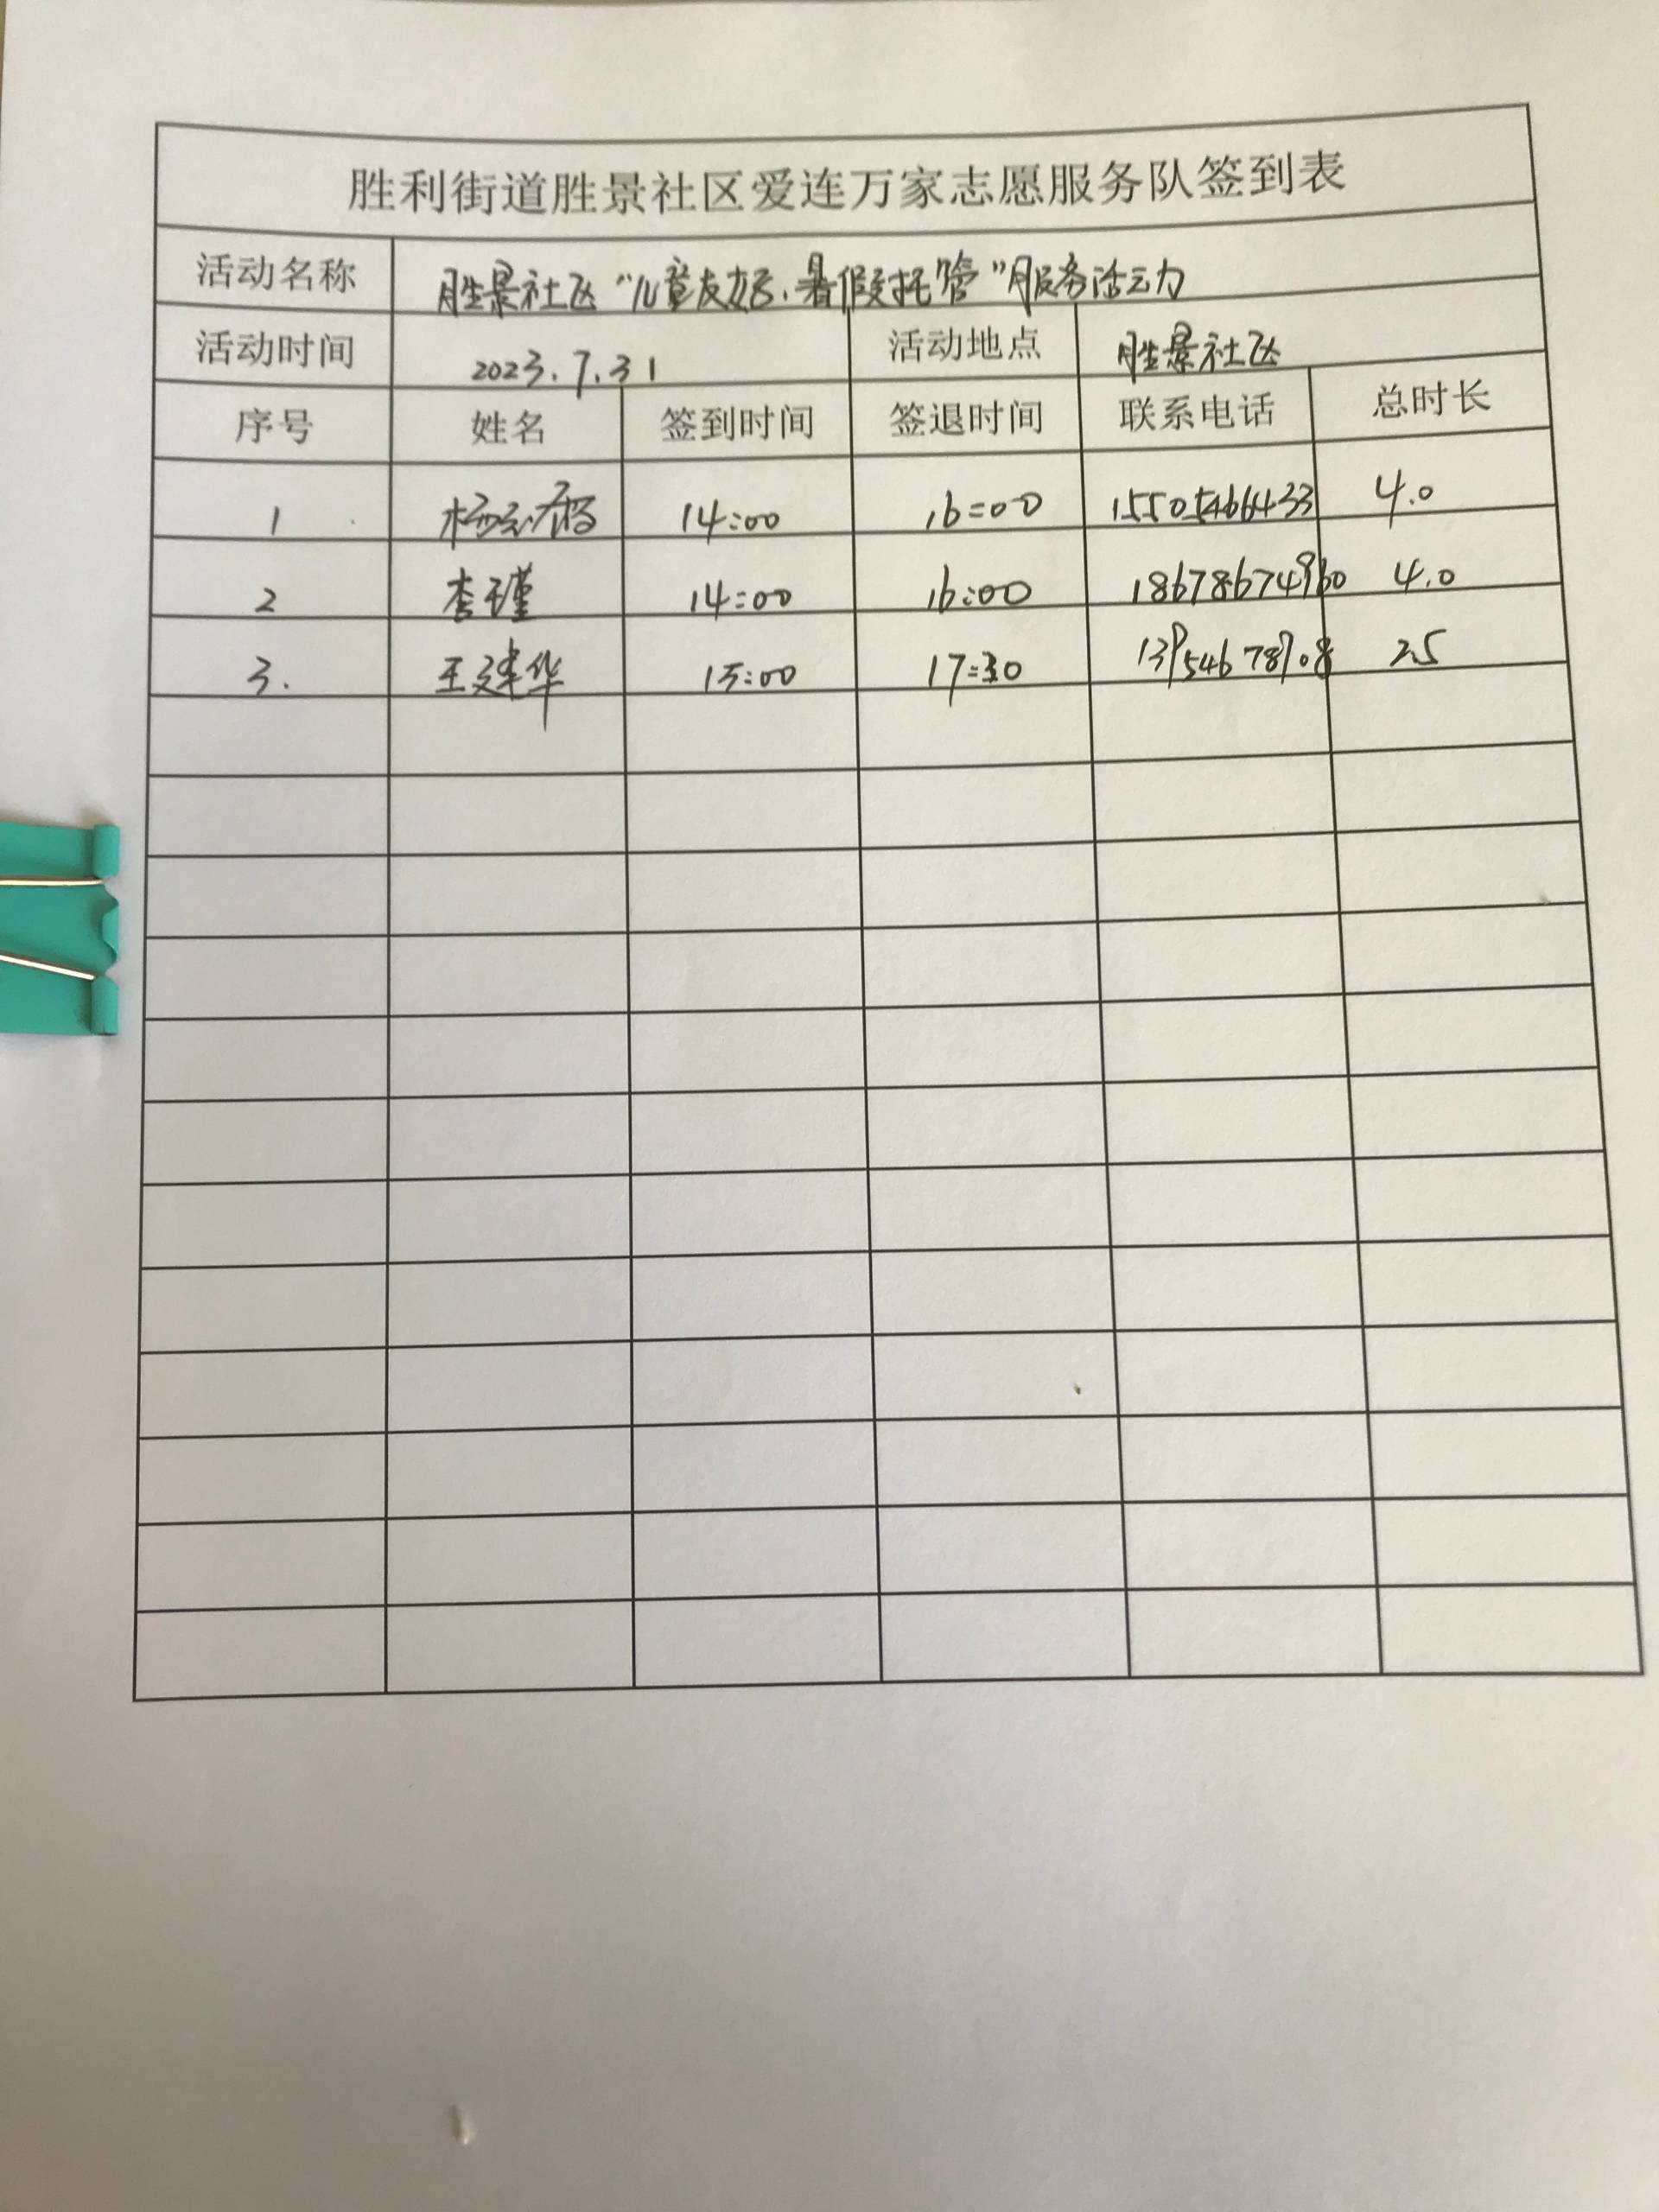 胜利街道胜景社区爱连万家志愿服务队签到表
活动名称 胜景社区“儿童友好、暑假托管”服务活动
活动时间 2023.7.31 活动地点 胜景社区
序号 姓名 签到时间 签退时间 联系电话 总时长
1 14:00 16:00 15505466433 4.0
2 李瑾 14:00 16:00 18678674960 4.0
3. 王建华 15:00 17:30 13954678908 2.5